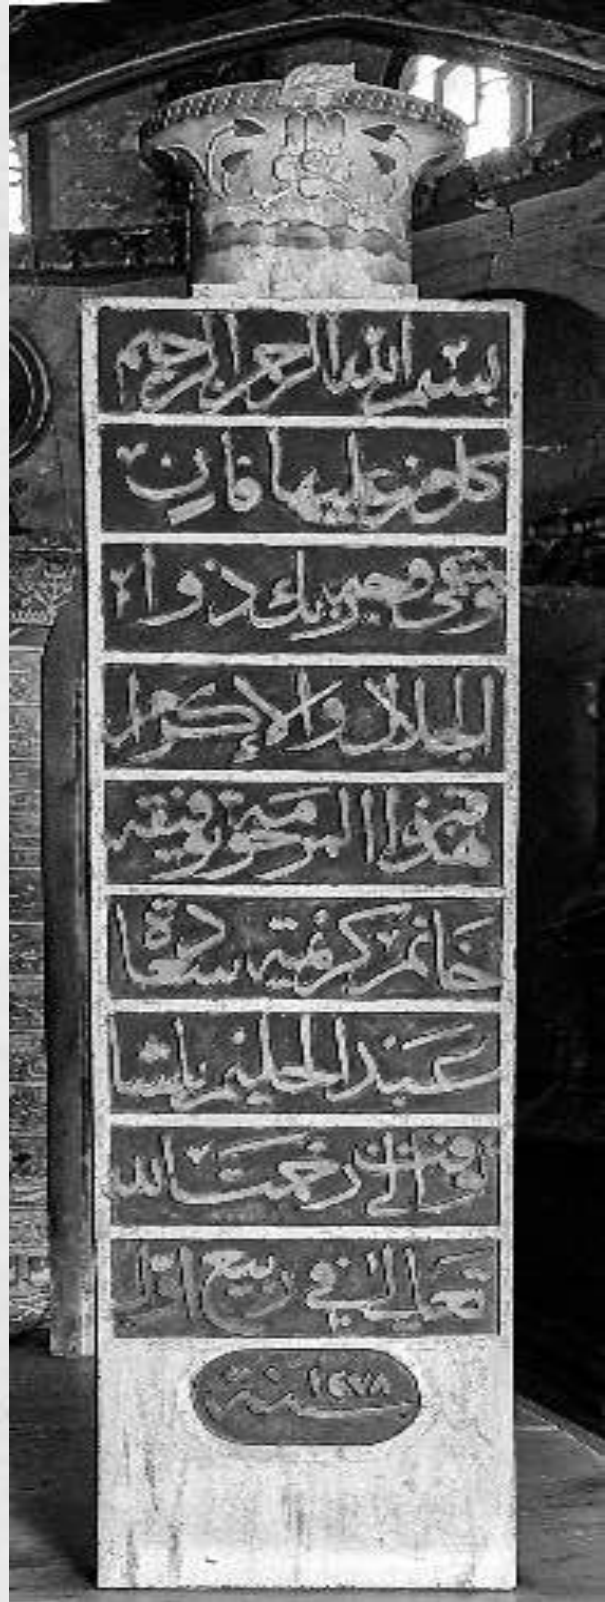 بسم الله الرحمن الرحيم
كل من عليها فان
ويبقى وجه ربك ذو ا
الجلال والإكرام
هذا قبر المرحومة توفيقه
خانم كريمة سعادة
عبد الحليم باشا
توفيت الى رحمت الله
تعالى في ربيع اول
سنة ١٢٧٨